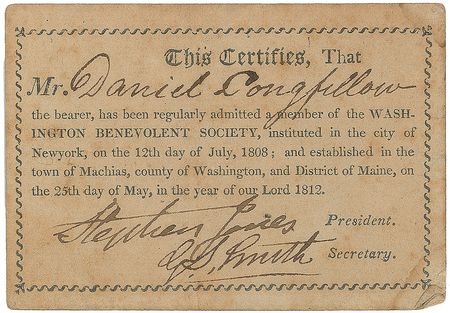 This Certifies, That
Mr. Daniel Longfellow
the bearer, has been regularly admitted a member of the WASH-
INGTON BENEVOLENT SOCIETY, instituted in the city of
Newyork, on the 12th day of July, 1808; and established in the
town of Machias, county of Washington, and District of Maine, on
the 25th day of May, in the year of our Lord 1812.
Stephen Jones President.
G. S. Smith Secretary.